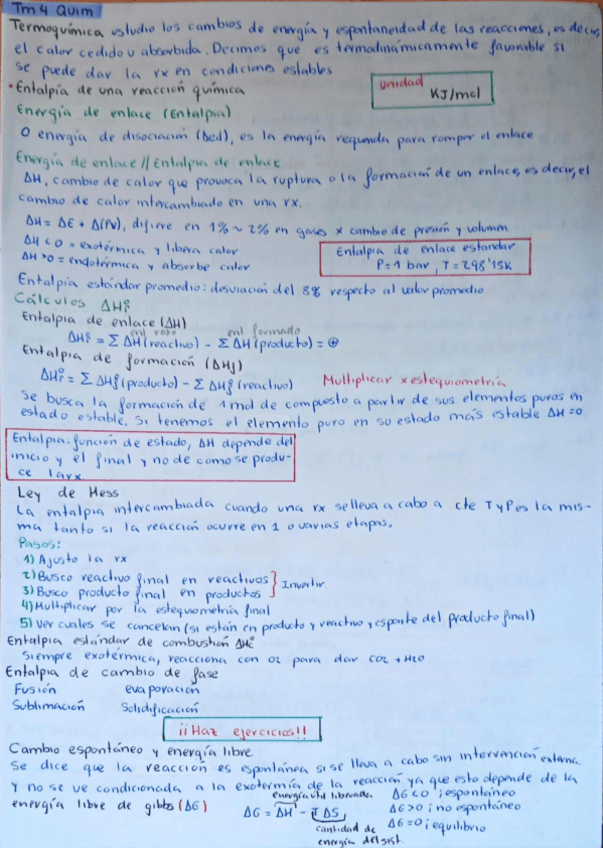 Tm 4 Quim
Termoquímica estudio los cambios de energía y espontaneidad de las reacciones, es decir,
el calor cedido u absorbida. Decimos que es termodinámicamente favorable si
se puede dar la rx en condiciones estables
• Entalpía de una reacción química
unidad
KJ/mol
Energía de enlace (Entalpia)
O energía de disociación (Δed), es la energía requerida para romper el enlace
Energía de enlace // Entalpia de enlace
ΔH, cambio de calor que provoca la ruptura o la formación de un enlace, es decir, el
cambio de calor intercambiado en una rx.
ΔH = ΔE + Δ(PV), difiere en 1% ~ 2% en gases x cambio de presión y volumen
ΔH < 0 = exotérmica y libera calor
ΔH > 0 = endotérmica y absorbe calor
Entalpia de enlace estandar
P = 1 bar, T = 298'15K
Entalpía estándar promedio: desviación del 8% respecto al valor promedio
Cálculos ΔHr°
Entalpia de enlace (ΔH)
enl roto enl formado
ΔHr° = Σ ΔH (reactivo) - Σ ΔH (producto) = ⊕
Entalpia de formación (ΔHf)
ΔHr° = Σ ΔHf° (producto) - Σ ΔHf° (reactivo) Multiplicar x estequiometría
Se busca la formación de 1 mol de compuesto a partir de sus elementos puros en
estado estable. Si tenemos el elemento puro en su estado más estable ΔH=0
Entalpia función de estado, ΔH depende del
inicio y el final y no de cómo se produ-
ce la rx.
Ley de Hess
La entalpia intercambiada cuando una rx se lleva a cabo a cte T y P es la mis-
ma tanto si la reacción ocurre en 1 o varias etapas.
Pasos:
1) Ajusto la rx
2) Busco reactivo final en reactivos } Invertir
3) Busco producto final en productos
4) Multiplicar por la estequometría final
5) Ver cuales se cancelan (si están en producto y reactivo y es parte del producto final)
Entalpia estándar de combustión ΔHc°
Siempre exotérmica, reacciona con O2 para dar CO2 + H2O
Entalpia de cambio de fase
Fusión evaporación
Sublimación Solidificación
¡¡Haz ejercicios!!
Cambio espontáneo y energía libre.
Se dice que la reacción es espontánea si se lleva a cabo sin intervención externa.
y no se ve condicionada a la exotermia de la reacción ya que esto depende de la
energía libre de gibbs (ΔG)
energía útil liberada
ΔG = ΔH - T ΔS
cantidad de
energía del sist.
ΔG < 0 ; espontáneo
ΔG > 0 ; no espontáneo
ΔG = 0 ; equilibrio